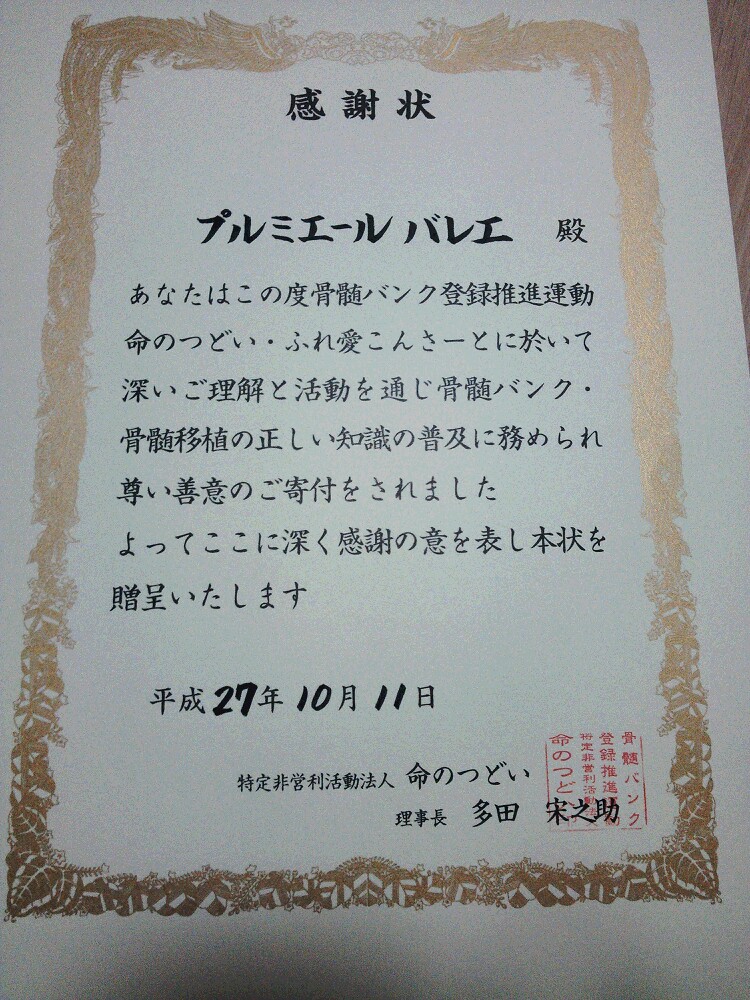 感謝状
プルミエール バレエ 殿
あなたはこの度骨髄バンク登録推進運動
命のつどい・ふれ愛こんさーとに於いて
深いご理解と活動を通じ骨髄バンク・
骨髄移植の正しい知識の普及に務められ
尊い善意のご寄付をされました
よってここに深く感謝の意を表し本状を
贈呈いたします
平成27年10月11日
特定非営利活動法人 命のつどい
理事長 多田 宋之助
骨髄バンク
登録推進運動
特定非営利活動法人
命のつどい